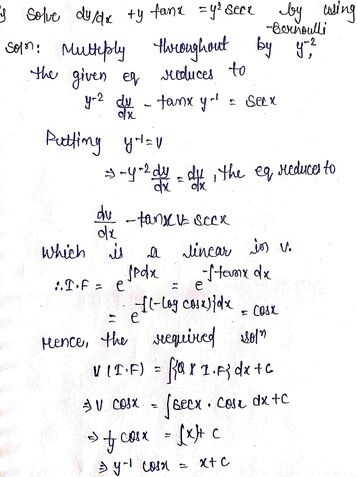 solve dy/dx + y tanx = y² secx by using
-Bernoulli
soln: Multeply throughout by y⁻²,
the given eq reduces to
y⁻² dy/dx - tanx y⁻¹ = secx
Putting y⁻¹=v
⇒ -y⁻² dy/dx = dv/dx, the eq reduces to
dv/dx - tanx v = secx
which is a linear in v.
∴ I.F = e^∫Pdx = e^-∫tanx dx
= e^-[(-log cosx)]dx = cosx
Hence, the required soln
V(I.F) = ∫{Q x I.F} dx + c
⇒ v cosx = ∫secx . cosx dx + c
⇒ 1/y cosx = ∫(x)+ c
⇒ y⁻¹ cosx = x+c